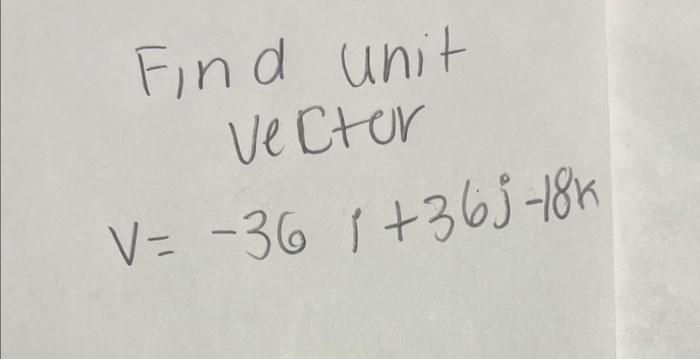 Find unit
vector
V= -36 i +36j -18k